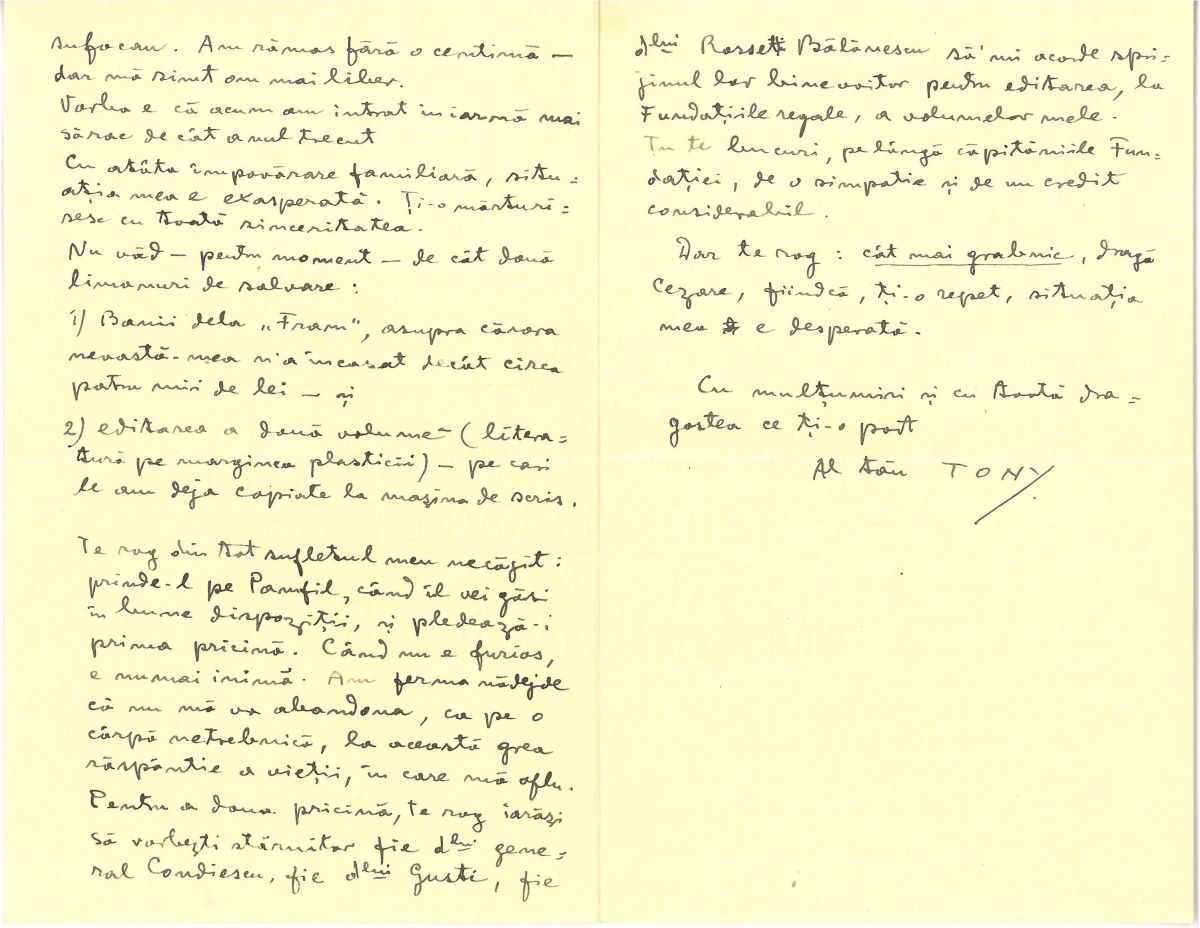 sufocau. Am rămas fără o centimă —
dar mă simt om mai liber.
Vorba e că acum am intrat in iarnă mai
sărac de cât anul trecut
Cu atâta împovărare familiară, situ=
ația mea e exasperată. Ți-o mărturi=
sesc cu toată sinceritatea.
Nu văd — pentru moment — de cât două
limanuri de salvare :
1) Banii dela „Fram", asupra cărora
nevastă-mea n'a încasat decât circa
patru mii de lei — și
2) editarea a două volume (litera=
tură pe marginea plasticii) — pe cari
le am deja copiate la mașina de scris.
Te rog din tot sufletul meu necăgit :
prinde-l pe Pamfil, când îl vei găsi
în bune dispoziții, și pledează-i
prima pricină. Când nu e furios,
e numai inimă. Am ferma nădejde
că nu mă va abandona, ca pe o
cârpă netrebnică, la această grea
răspântie a vieții, în care mă aflu.
Pentru a doua pricină, te rog iarăși
să vorbești stăruitor fie dlui gene=
ral Condiescu, fie dlui Gusti, fie
dlui Rosseti Bălănescu să'mi acorde spri=
jinul lor binevoitor pentru editarea, la
Fundațiile regale, a volumelor mele.
Tu te bucuri, pe lângă căpităniile Fun=
dației, de o simpatie și de un credit
considerabil.
Dar te rog : cât mai grabnic, dragă
Cezare, fiindcă, ți-o repet, situația
mea e desperată.
Cu mulțumiri și cu toată dra=
gostea ce ți-o port
Al tău TONY